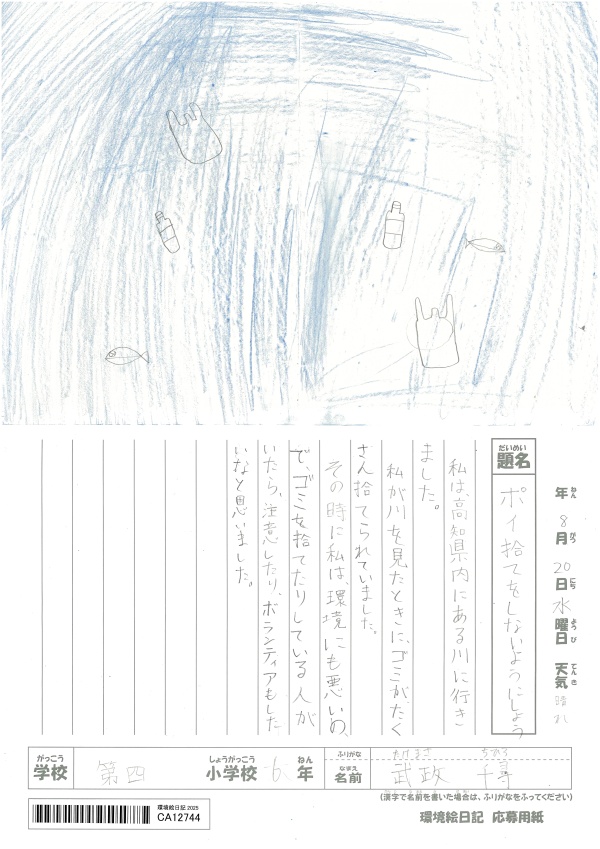 年 8月 20日 水曜日 天気 晴れ
ねん がつ にち ようび てんき
だいめい
題名
ポイ捨てをしないようにしよう
私は、高知県内にある川に行き
ました。
私が川を見たときに、ゴミが、たく
さん捨てられていました。
その時に私は、環境にも悪いの
で、ゴミを捨てたりしている人が
いたら、注意したり、ボランティアもした
いなと思いました。
がっこう
学校
第四
しょうがっこう
小学校
6
ねん
年
ふりがな
たけまさ ちひろ
なまえ
名前
武政 千尋
(漢字で名前を書いた場合は、ふりがなをふってください)
環境絵日記 2025
CA12744
環境絵日記 応募用紙